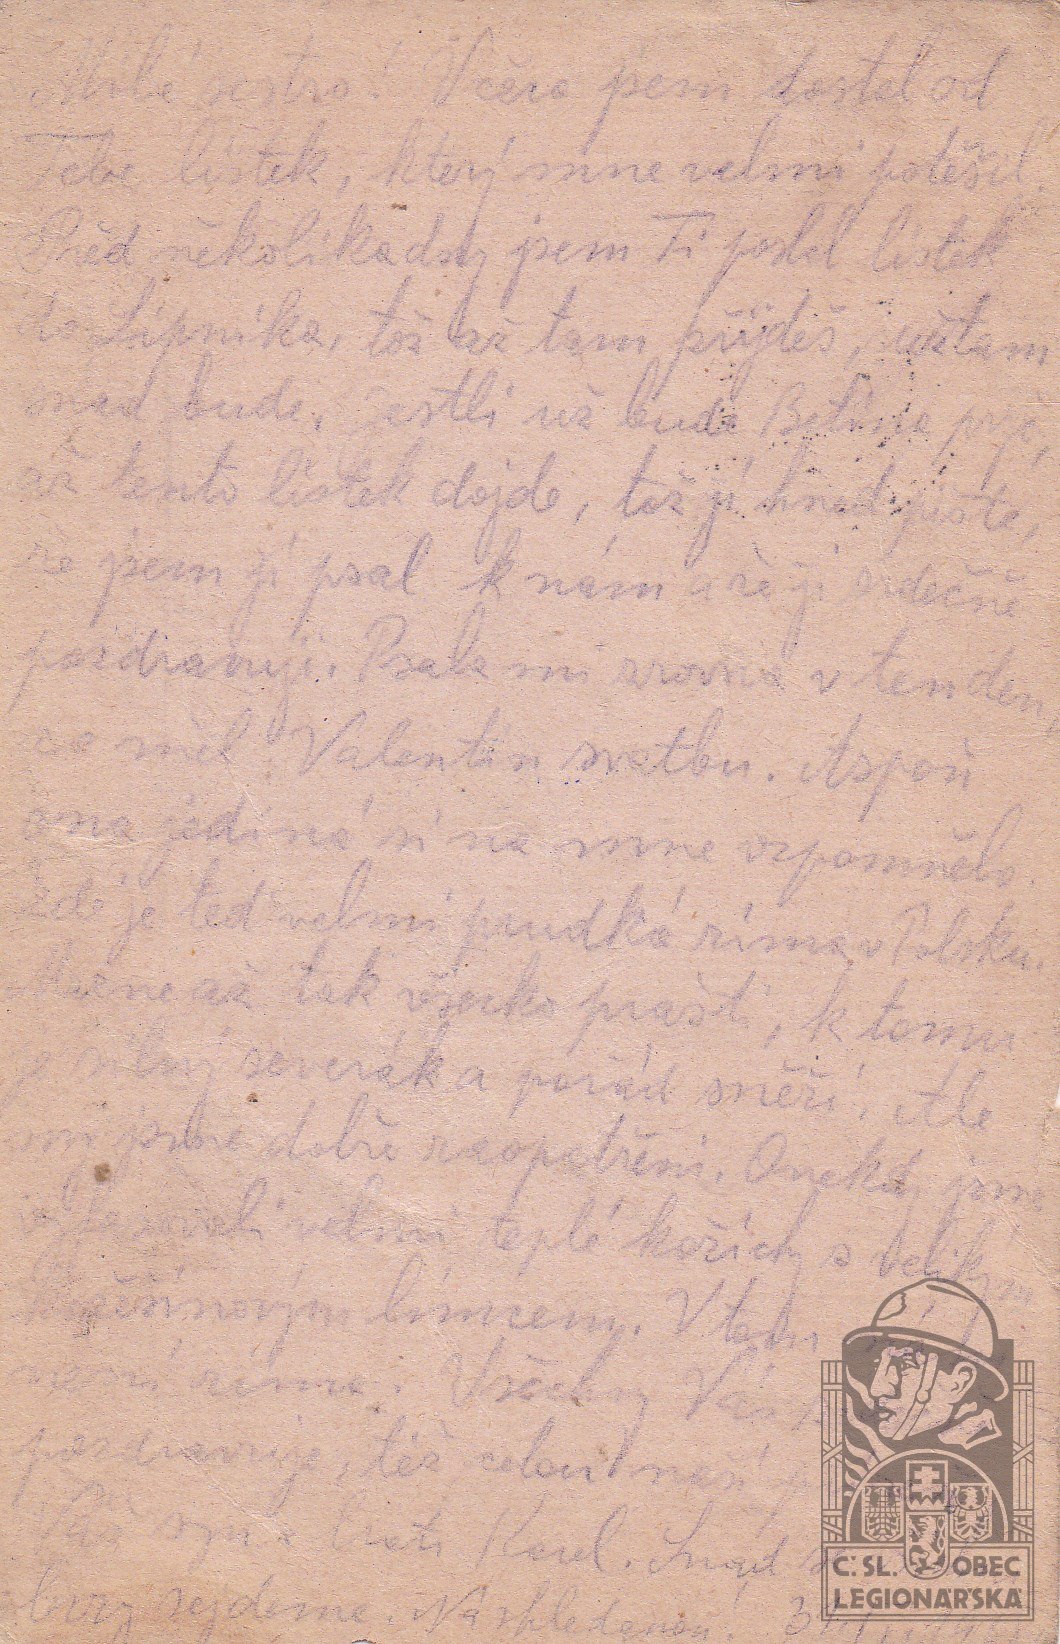 Milá sestro! Včera jsem dostal od
Tebe lístek, který mne velmi potěšil.
Před několika dny jsem Ti poslal lístek
do Lipníka, tož až tam přijdeš, už tam
snad bude. Jestli už bude Betina pryč,
až tento lístek dojde, tož jí hned pište,
že jsem jí psal k nám a že jí srdečně
pozdravuji. Psala mi zrovna v ten den,
co měl Valentin svatbu. Aspoň
ona jediná si na mne vzpomněla.
Zde je teď velmi prudká zima v Polsku.
Mrzne až tak všecko praští, k tomu
silný severák a pořád sněží. Ale
mi jsme dobře zaopatřeni. Onekdy jsme
vyfasovali velmi teplé kožichy s velikým
límcem. V tom
není zima. Všechny Vás
pozdravuje, též celou naši
Váš syn a bratr Karel. Snad se
brzy sejdeme. Na shledanou!
Č.SL. OBEC
LEGIONÁŘSKÁ